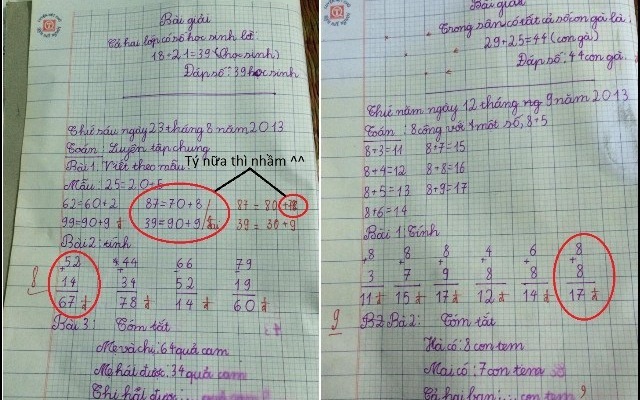 Bài giải
Cả hai lớp có số học sinh là:
18+21=39 (học sinh)
Đáp số: 39 học sinh
Thứ sáu ngày 23 tháng 8 năm 2013
Toán: Luyện tập chung
Bài 1: Viết theo mẫu
Tý nữa thì nhầm ^^
Mẫu: 25=20+5
62=60+2 87=70+8 87 = 80
99=90+9 39=90+9 39 = 30+9
Bài 2: tính
52 44 66 79
+
14 34 52 19
67 78 14 60
8
Bài 3: Tóm tắt
Mẹ và chị: 64 quả cam
Mẹ hái được: 34 quả cam
Chị hái được
Bài giải
Trong sân có tất cả số con gà là:
29+25=44 (con gà)
Đáp số: 44 con gà
Thứ năm ngày 12 tháng ng 9 năm 2013
Toán: 8 cộng với 1 một số, 8+5
8+3=11 8+7=15
8+4=12 8+8=16
8+5=13 8+9=17
8+6=14
Bài 1: Tính
8 8 8 4 6 8
+ + + + + +
3 7 9 8 8 8
11 15 17 12 14 17
9
B2 Bài 2: Tóm tắt
Hà có: 8 con tem
Mai có: 7 con tem
Cả hai bạn:... con tem